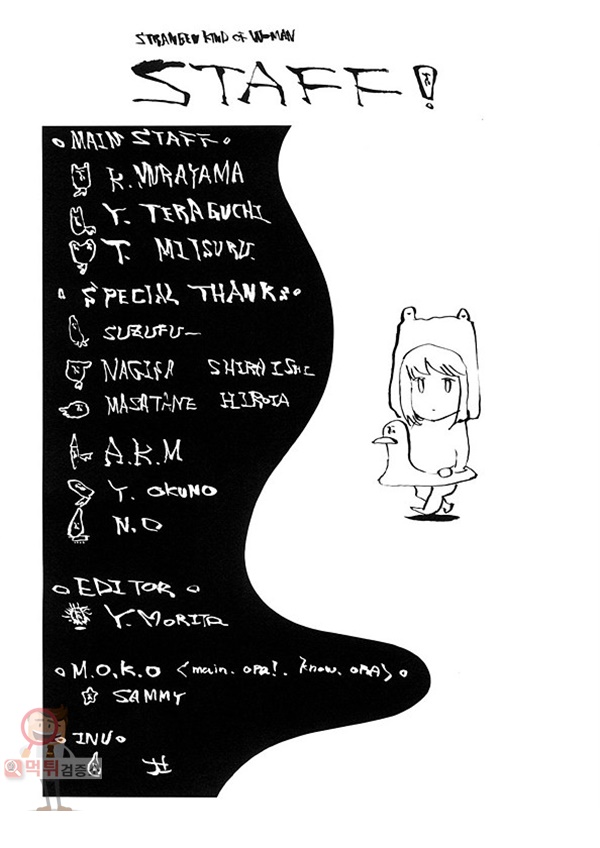 STRANGER KIND OF WOMAN
STAFF!
MAIN STAFF
K. MURAYAMA
Y. TERAGUCHI
T. MITSURU
SPECIAL THANKS
SUZUFU—
NAGISA SHIRAISHI
MASATANE HIROTA
A.K.M
Y. OKUNO
N.O
EDITOR
Y. MORITA
M.O.K.O <main. opa!. know. opa>
SAMMY
INU
먹튀검증